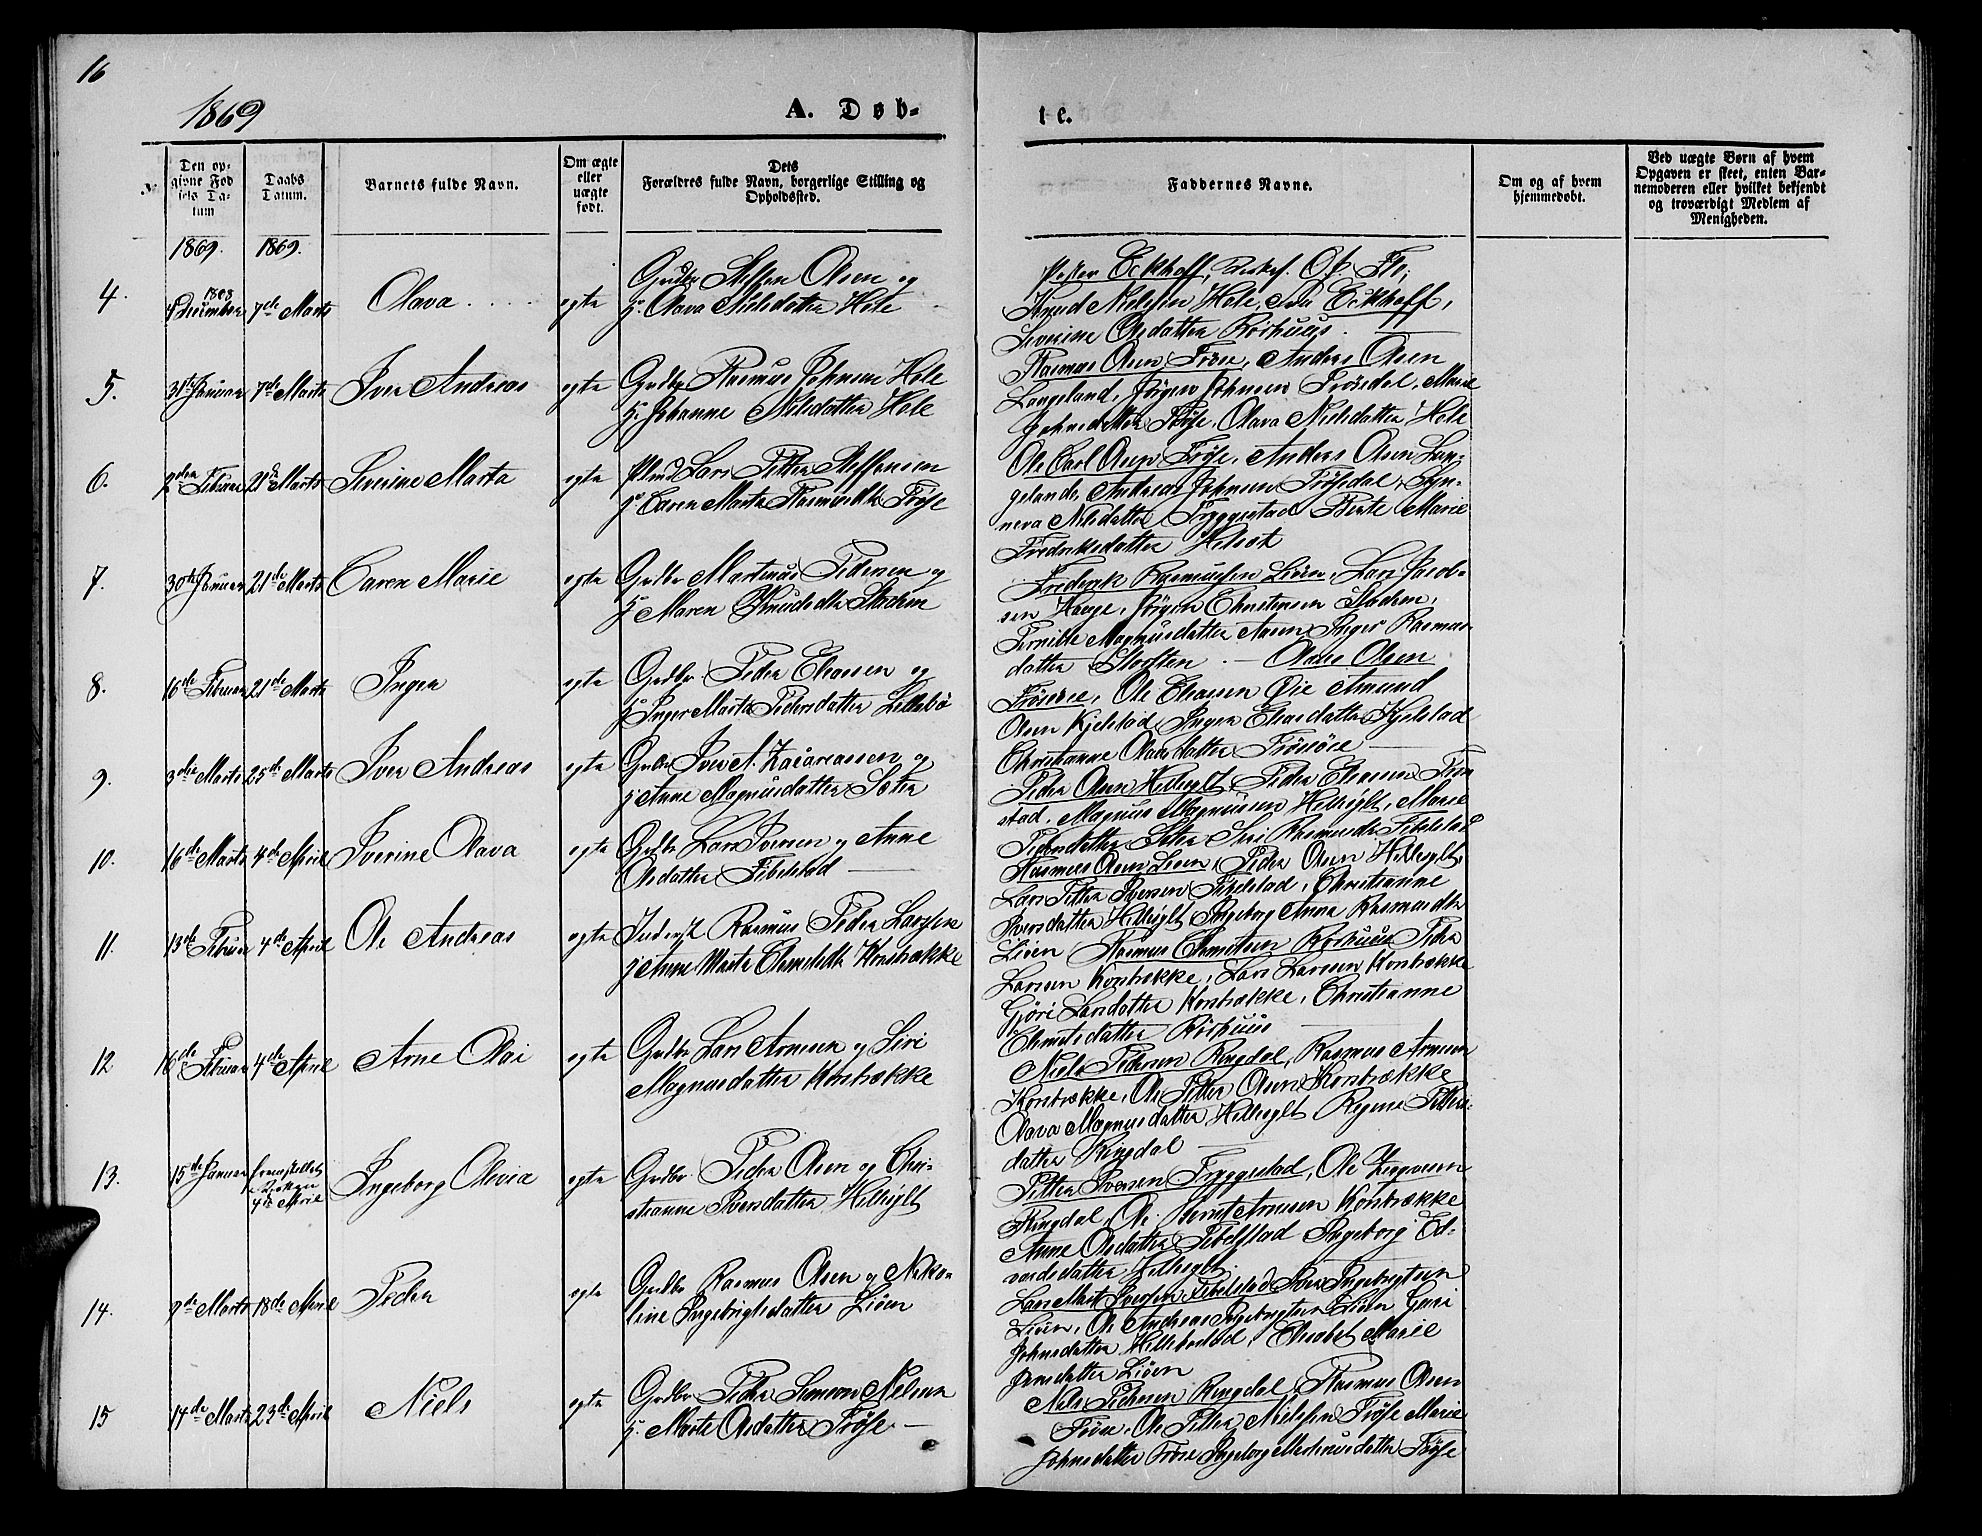 16
1869
A. Døb-
te.
№
Den op-
givne Fød
sels Da-
tum
Daabs
Datum.
Barnets fulde Navn.
Om ægte
eller
uægte
født.
Dets
Forældres fulde Navn, borgerlige Stilling og
Opholdssted.
Faddernes Navne.
Om og af hvem
hjemmedøbt.
Ved uægte Børn af hvem
Opgaven er skeet, enten Bar-
nemoderen eller hvilket bekjendt
og troværdigt Medlem af
Menigheden.
1869. 1869.
4. 1868 7de Marts Olava ægte
Gudbr Steffen Olsen og
H. Olava Nilsdatter Hole
Eckhoff,
Knud Nielssen Hole, Eckhoff,
Severine Olsdatter Rørhuus.
5. 31te Januar 7de Marts Iver Andreas ægte
Gudbr Rasmus Johnsen Hole
H. Johanne Nilsdatter Hole
Rasmus Olsen Frøse, Anders Olsen
Langeland, Jørgen Johnsen Frøsdal, Marie
Johnsdatter Frøse, Olava Nielsdatter Hole
6. 2den Februar 21de Marts Sivrine Marta ægte
Plmd Lars Petter Steffensen
H. Caren Marta Rasmusdtr Frøse
Ole Carl Olsen Frøse, Anders Olsen Lan-
geland, Andreas Johnsen Frøsdal, Syn-
neva Nilsdatter Tryggestad Berte Marie
Fredriksdatter Helset
7. 30te Januar 21de Marts Caren Marie ægte
Gudbr Martinus Pedersen og
H. Maren Knudsdtr Stadem
Frederik Rasmussen Liøen, Lars Jacob-
sen Hauge, Jørgen Christensen Stadem,
Pernille Magnusdatter Aasen Inger Rasmus-
datter Storsten.
8. 16de Februar 21de Marts Inger ægte
Gudbr Peder Eliassen og
H. Inger Marta Pedersdatter Lillebø
Olaus Olsen
Frøsøre, Ole Eliassen Øie Amund
Olsen Kjelstad, Inger Eliasdatter Kjelstad
Christianne Olausdatter Frøsøre
9. 3die Marts 25de Marts Iver Andreas ægte
Gudbr Iver A. Zacariassen og
H. Anne Magnusdatter Sæter
Peder Olsen Hellesylt, Peder Eliassen Trom
stad, Magnus Magnussen Hellesylt, Marie
Pedersdatter Sæter Siri Rasmusdtr Fibelstad
10. 16de Marts 4de April Iverine Olava ægte
Gudbr Lars Iversen og Anne
Olsdatter Fibelstad
Rasmus Olsen Liøen, Peder Olsen Hellesylt
Lars Petter Iversen Fibelstad, Christianne
Iversdatter Hellesylt Ingeborg Anna Rasmusdtr
Liøen
11. 13de Februar 4de April Ole Andreas ægte
Inderst Rasmus Peder Larssen
H. Anne Marta Christsdtr Korsbrække
Rasmus Christensen Rørhuus Peder
Larsen Korsbrække, Lars Larsen Korsbrække
Gjøri Larsdatter Korsbrække, Christianne
Christsdatter Rørhuus
12 16de Februar 4de April Arne Olai ægte
Gudbr Lars Arnesen og Siri
Magnusdatter Korsbrække
Niels Pedersen Ringdal, Rasmus Arnesen
Korsbrække, Ole Petter Olsen Korsbrække
Olava Magnusdatter Hellesylt Regine Petters-
datter Ringdal
13. 15de Januar fremstillet i Kirken 4de April Ingeborg Olevia ægte
Gudbr Peder Olsen og Chri-
stianne Iversdatter Hellesylt
Petter Iversen Tryggestad, Ole
Ringdal, Ole Bernt Arnesen Korsbrække
Anne Olsdatter Fibelstad Ingeborg Ed-
vardsdatter Hellesylt.
14. 9de Marts 18de April Peder ægte
Gudbr Rasmus Olsen og Niko-
line Ingebrigtsdatter Liøen
Lars Mart Iversen Fibelstad Iver Ingebrigtsen
Liøen, Ole Andreas Ingebrigtsen Liøen Guri
Johnsdatter Hellebostad, Elisabet Marie
Jensdatter Liøen
15 14de Marts 23de April Niels ægte
Gudbr Peder Simeon Nilsen
H. Marte Olsdatter Frøse
Niels Pedersen Ringdal, Rasmus Olsen
Frøse, Ole Petter Nielssen Frøse Marie
Johnsdatter Frøse Ingeborg Martinusdatter Frøse